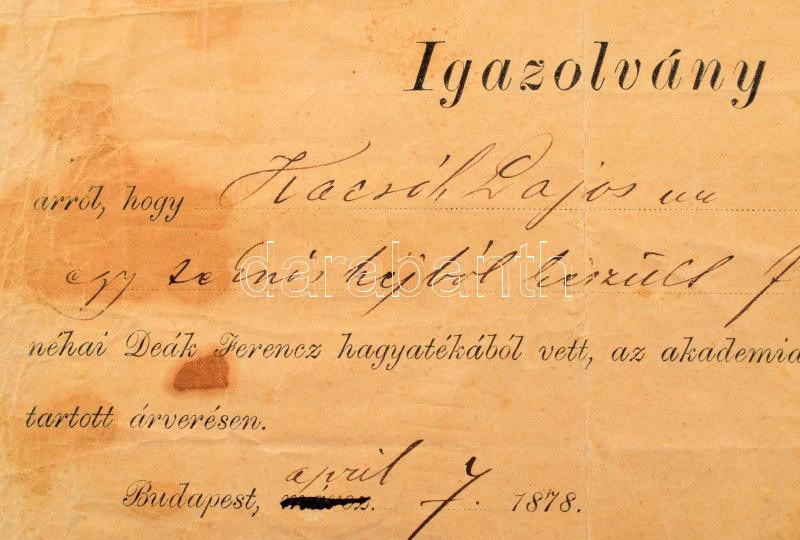 Igazolvány
arról, hogy Kacsóh Lajos úr
egy teknőc héjból készült
néhai Deák Ferencz hagyatékából vett, az akademia
tartott árverésen.
Budapest, april 7. 1878.
darabanth